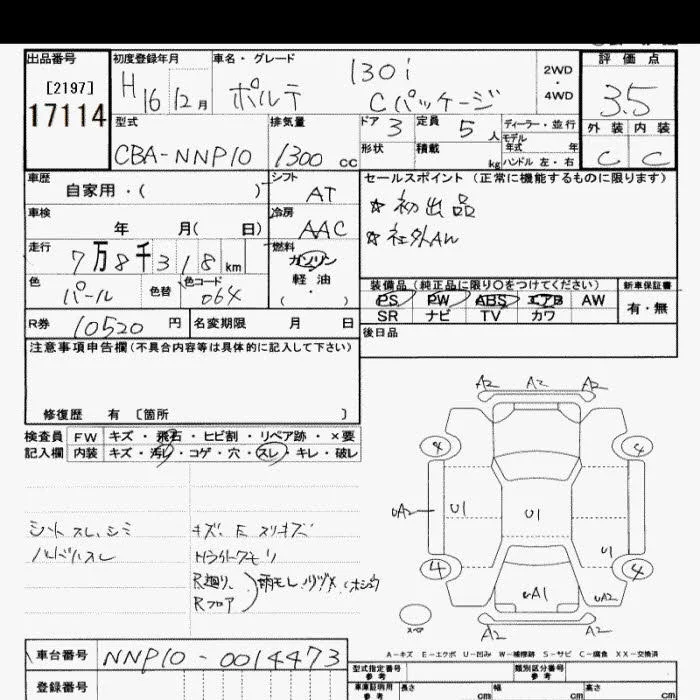 出品番号
[2197]
17114
初度登録年月
H 16 12月
車名・グレード
ポルテ
130i
Cパッケージ
2WD
・
4WD
評価点
3.5
外装 内装
C C
型式
CBA-NNP10
排気量
1300 cc
ドア 3
定員 5 人
形状
積載 kg
ディーラー・並行
モデル年式 年
ハンドル 左・右
車歴
自家用・( )
シフト
AT
車検
年 月( 日)
冷房
AAC
走行
7万8千318km
燃料
ガソリン
・
軽油
・
( )
色
パール
色替
色コード
064
R券 10520 円
名変期限 月 日
セールスポイント(正常に機能するものに限ります)
☆初出品
☆社外AW
装備品(純正品に限り〇をつけてください)
PS PW ABS エアB AW
SR ナビ TV カワ
新車保証書
有・無
後日品
注意事項申告欄(不具合内容等は具体的に記入して下さい)
修復歴 有 〔箇所 〕
検査員
記入欄
FW キズ・飛石・ヒビ割・リペア跡・×要
内装 キズ・汚レ・コゲ・穴・スレ・キレ・破レ
シート スレ、シミ
ハンドルスレ
キズ、E スリキズ
R廻り、
Rフロア
雨モレ
A2 A2 A2
4 4
UA2 U1 U1 U1
4 4
A1
A2
スペア
A2 A2
A-キズ E-エクボ U-凹み W-補修跡 S-サビ C-腐食 XX-交換済
車台番号
NNP10-0014473
登録番号
型式指定番号
参考
類別区分番号
参考
車庫証明用
参考
長さ cm
幅 cm
高さ cm